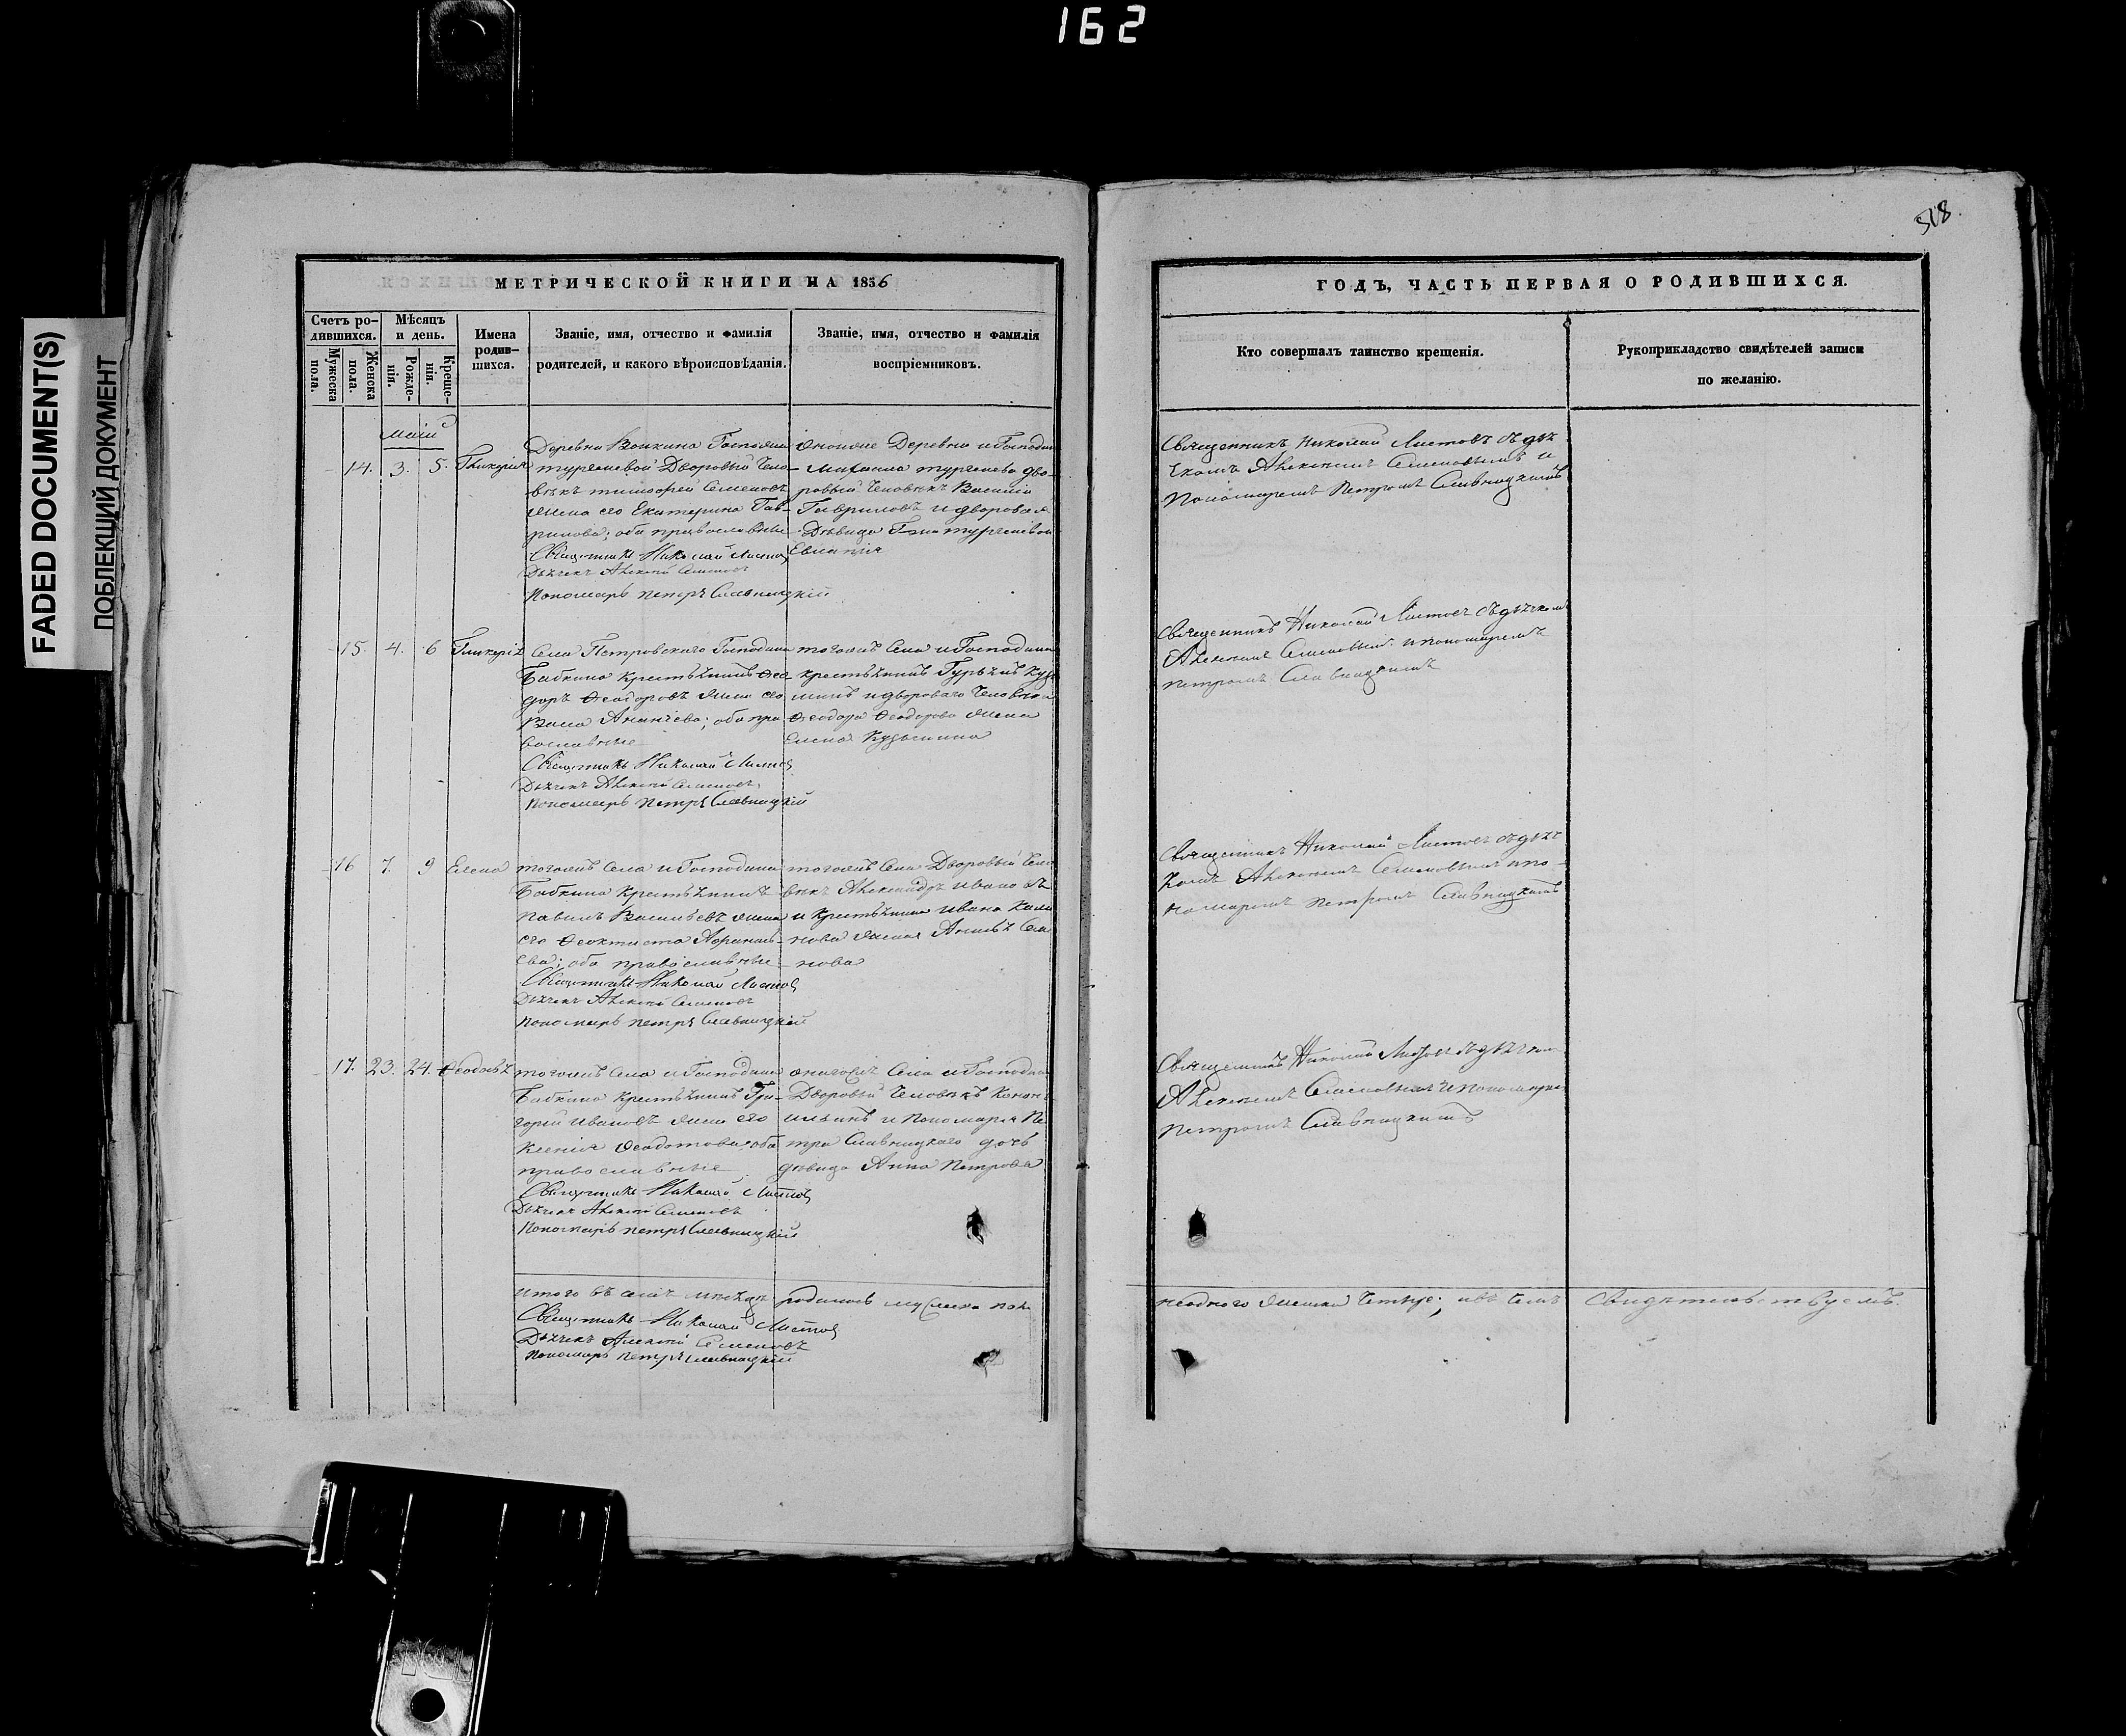 162
FADED DOCUMENT(S)
ПОБЛЕКЩИЙ ДОКУМЕНТ
518.
МЕТРИЧЕСКОЙ КНИГИ НА 1836
Счетъ ро-
дившихся.
Мужеска
пола.
Женска
пола.
Мѣсяцъ
и день.
Рожде-
нія.
Креще-
нія.
Имена
родив-
шихся.
Званіе, имя, отчество и фамилія
родителей, и какого вѣроисповѣданія.
Званіе, имя, отчество и фамилія
воспріемниковъ.
Маій
14. 3. 5. Гликерія
Деревни Госпожи
тургеневой Дворовый Чело-
вѣкъ тимофей Семеновъ
жена его Екатерина Гав-
рилова; оба православные
Священникъ Николай Листов
Дьячекъ Алексей Семеновъ
Пономарь петръ Славницкій
оноиже Деревни и Господин
Михаила тургенева дво-
ровый Человѣкъ Василій
Гавриловъ и дворовая
Дѣвица Г-жи тургеневой
15. 4. 6 Гликерія
Села Петровскаго Господина
Бабкина крестьянинъ Ѳео-
доръ Ѳеодоровъ жена его
Васа Ананіева; оба пра-
вославные
Священникъ Николай Листов
Дьячекъ Алексей Семеновъ
Пономарь петръ Славницкій
тогожъ Села и Господина
крестьянинъ Гурьянъ Кузь
минъ и двороваго Человѣка
Ѳеодора Ѳеодорова жена
Елена Кузьмина
16 7. 9 Елена
тогожъ Села и Господина
Бабкина Крестьянинъ
Павелъ Васильевъ жена
его Ѳеоктиста
ева; оба православные
Священникъ Николай Листов
Дьячекъ Алексей Семеновъ
Пономарь петръ Славницкій
тогожъ Села Дворовый Чело
вѣкъ Александръ Ивановъ
и Крестьянина Ивана
нова жена Сем
нова
17. 23. 24. Ѳеодосья
тогожъ Села и Господина
Бабкина Крестьянинъ Гри-
горій Ивановъ жена его
Ксенія Ѳеодотова; оба
православные
Священникъ Николай Листов
Дьячекъ Алексей Семеновъ
Пономарь петръ Славницкій
Села и Господина
Дворовый Человѣкъ Конон
Ильинъ и Пономаря Пе
тра Славницкаго дочь
дѣвица Анна Петрова
Итого въ семъ мѣсяцѣ родилось мужеска пола
Священникъ Николай Листов
Дьячекъ Алексей Семеновъ
Пономарь петръ Славницкій
ГОДЪ, ЧАСТЬ ПЕРВАЯ О РОДИВШИХСЯ.
Кто совершалъ таинство крещенія.
Рукоприкладство свидѣтелей записи
по желанію.
Священникъ Николай Листовъ съ дья
чкомъ Алексеемъ Семеновымъ и
Пономаремъ Петромъ Славницкимъ
Священникъ Николай Листовъ съ дьячкомъ
Алексеемъ Семеновым и пономаремъ
петромъ Славницкимъ
Священникъ Николай Листовъ съ дьяч
комъ Алексеемъ Семеновымъ и по-
номаремъ петромъ Славницкимъ
Священникъ Николай Листовъ съ дьячком
Алексеемъ Семеновымъ и пономаре
Петромъ Славницкимъ
ни одного женска четыре; въ чемъ свидѣтельствуемъ.